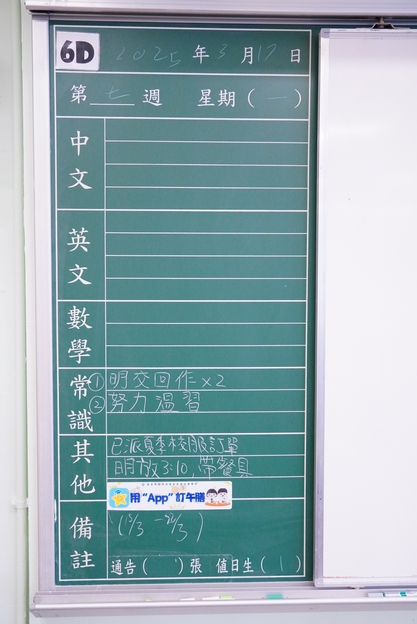 6D 2025年3月17日
第七週 星期(一)
中文
英文
數學
常識
①明交回作x2
②努力溫習
其他
已派夏季校服訂單
明放3:10,帶餐具
用“App”訂午膳
備註
通告( )張 值日生(1)